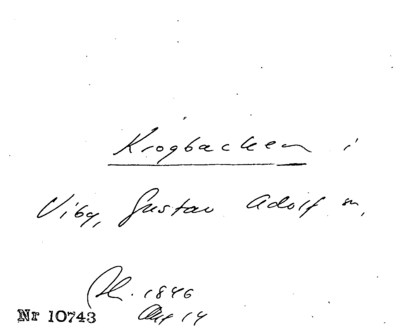 Krogbacken i
Viby, Gustav Adolf sn,
1846
Nr 10743 Aug 14